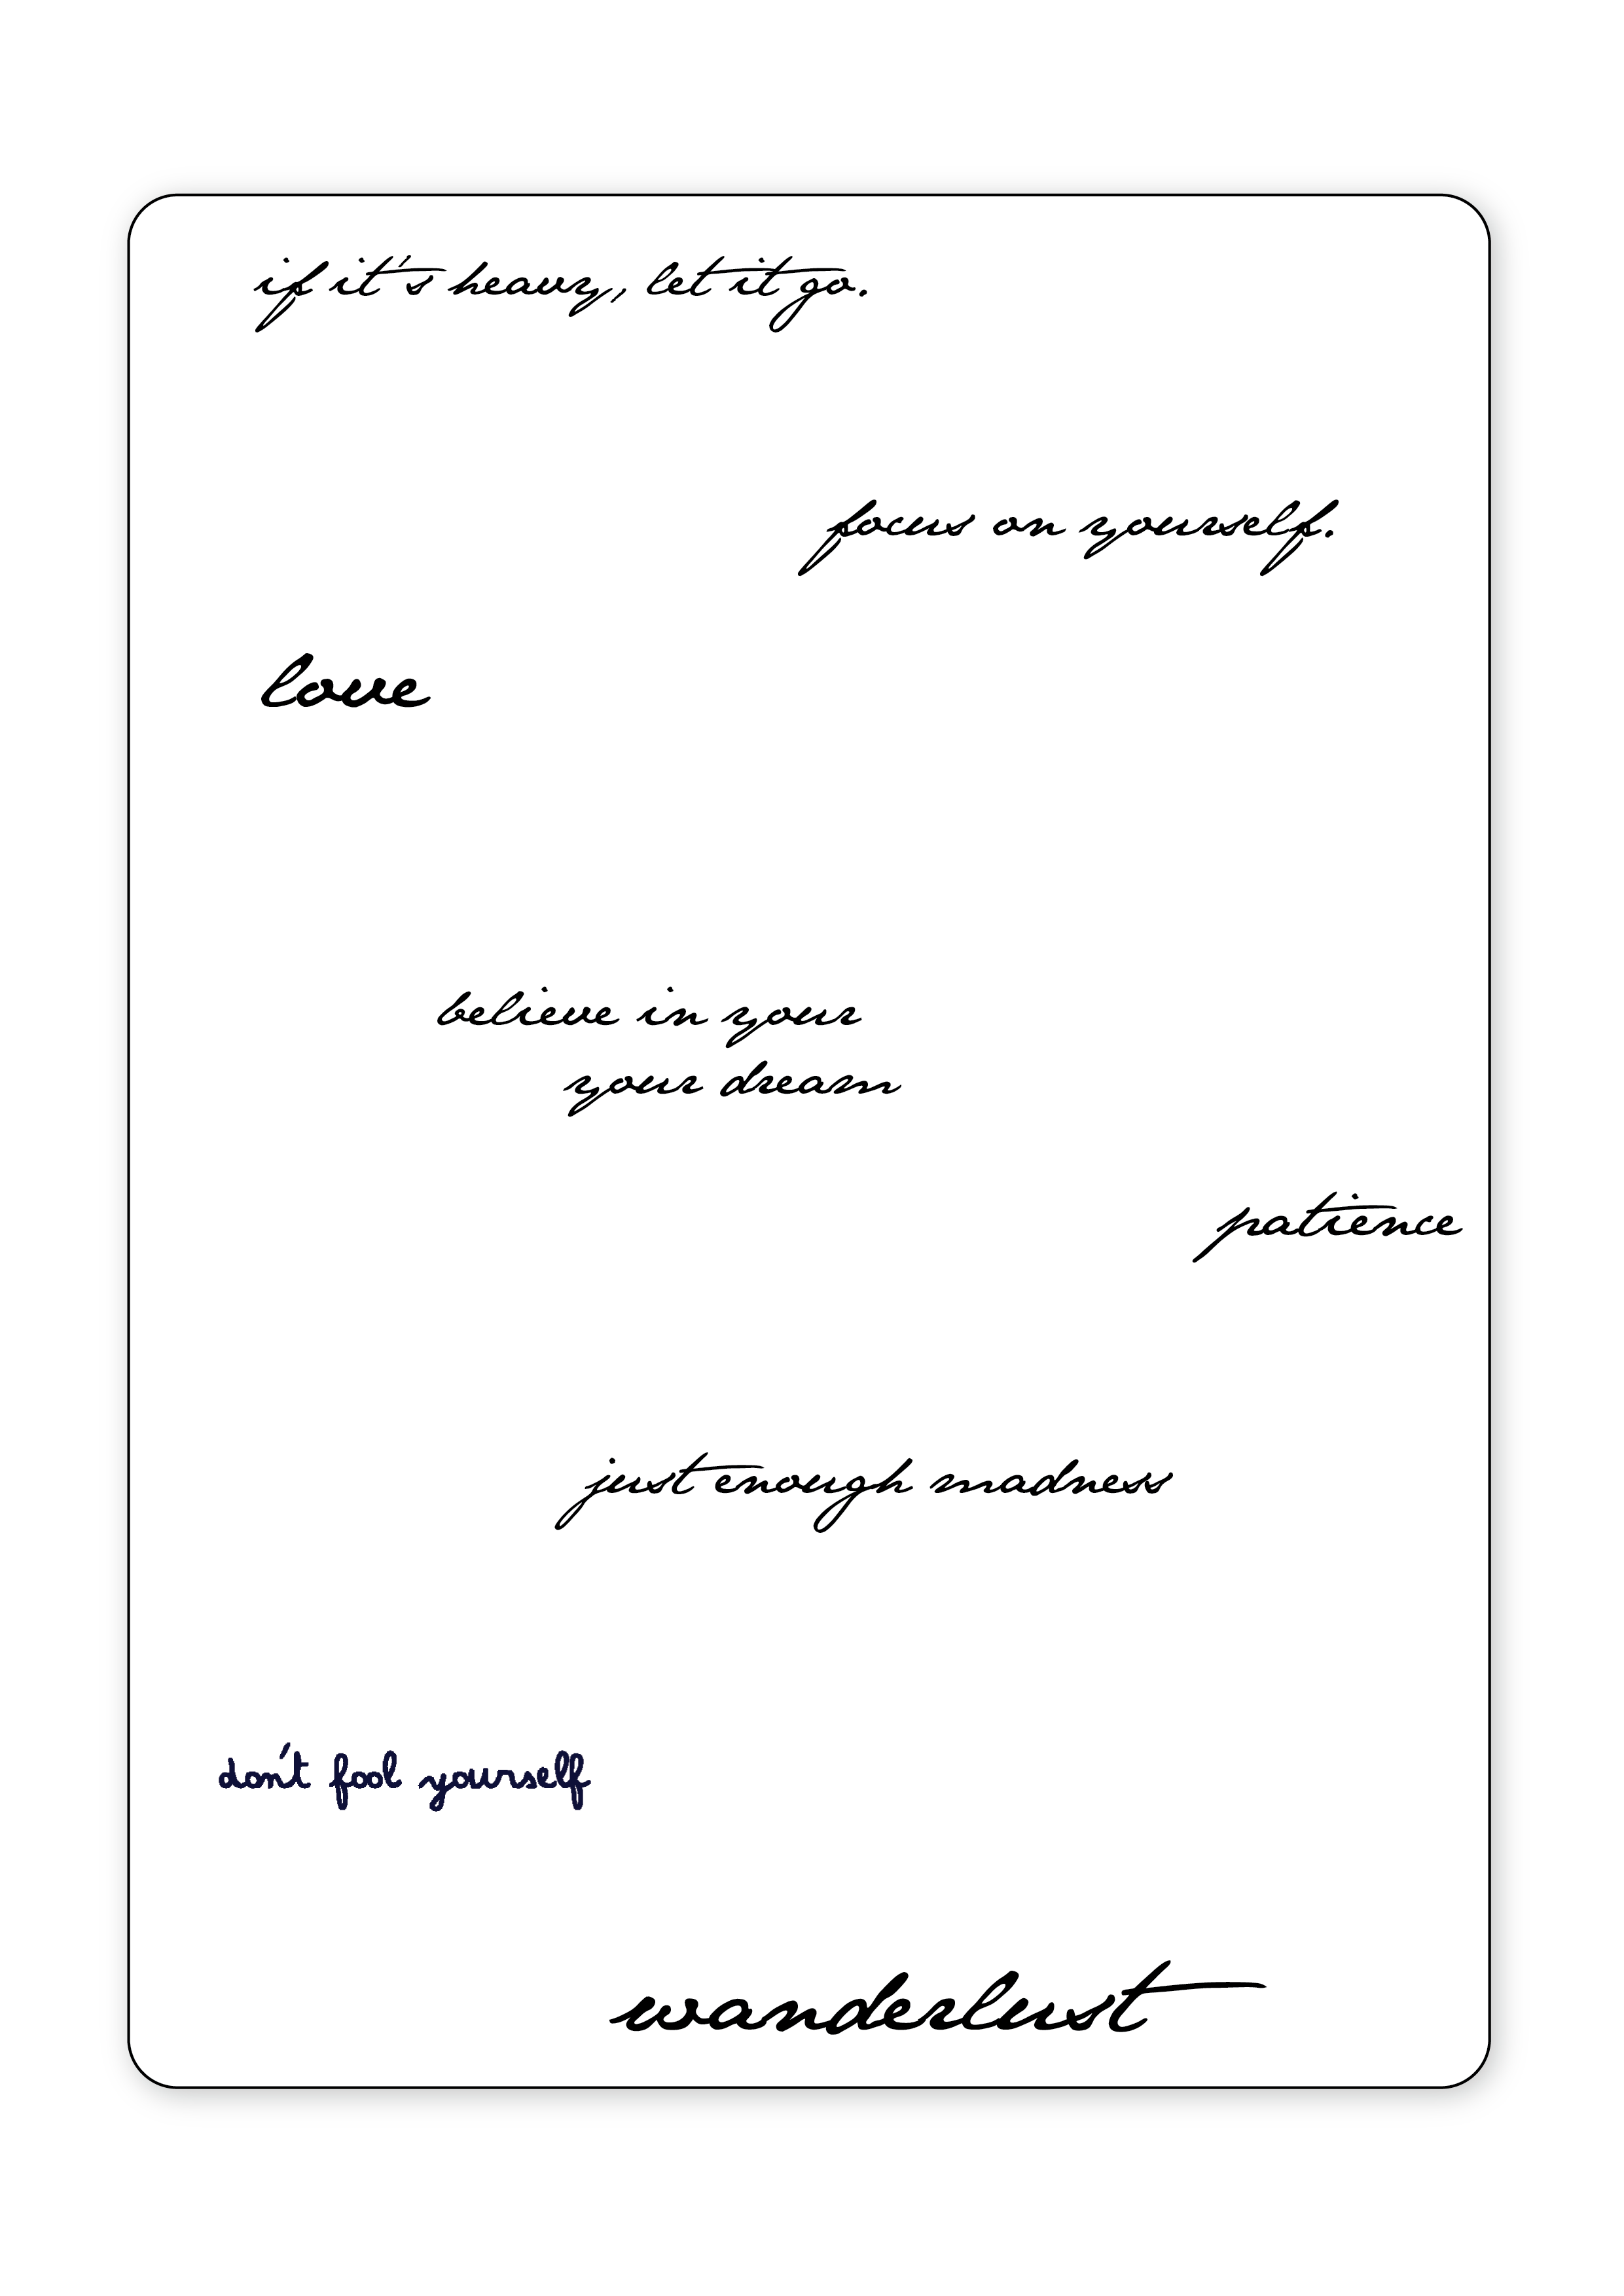 if it's heavy, let it go.
focus on yourself.
love
believe in your
your dream
patience
just enough madness
don't fool yourself
wanderlust